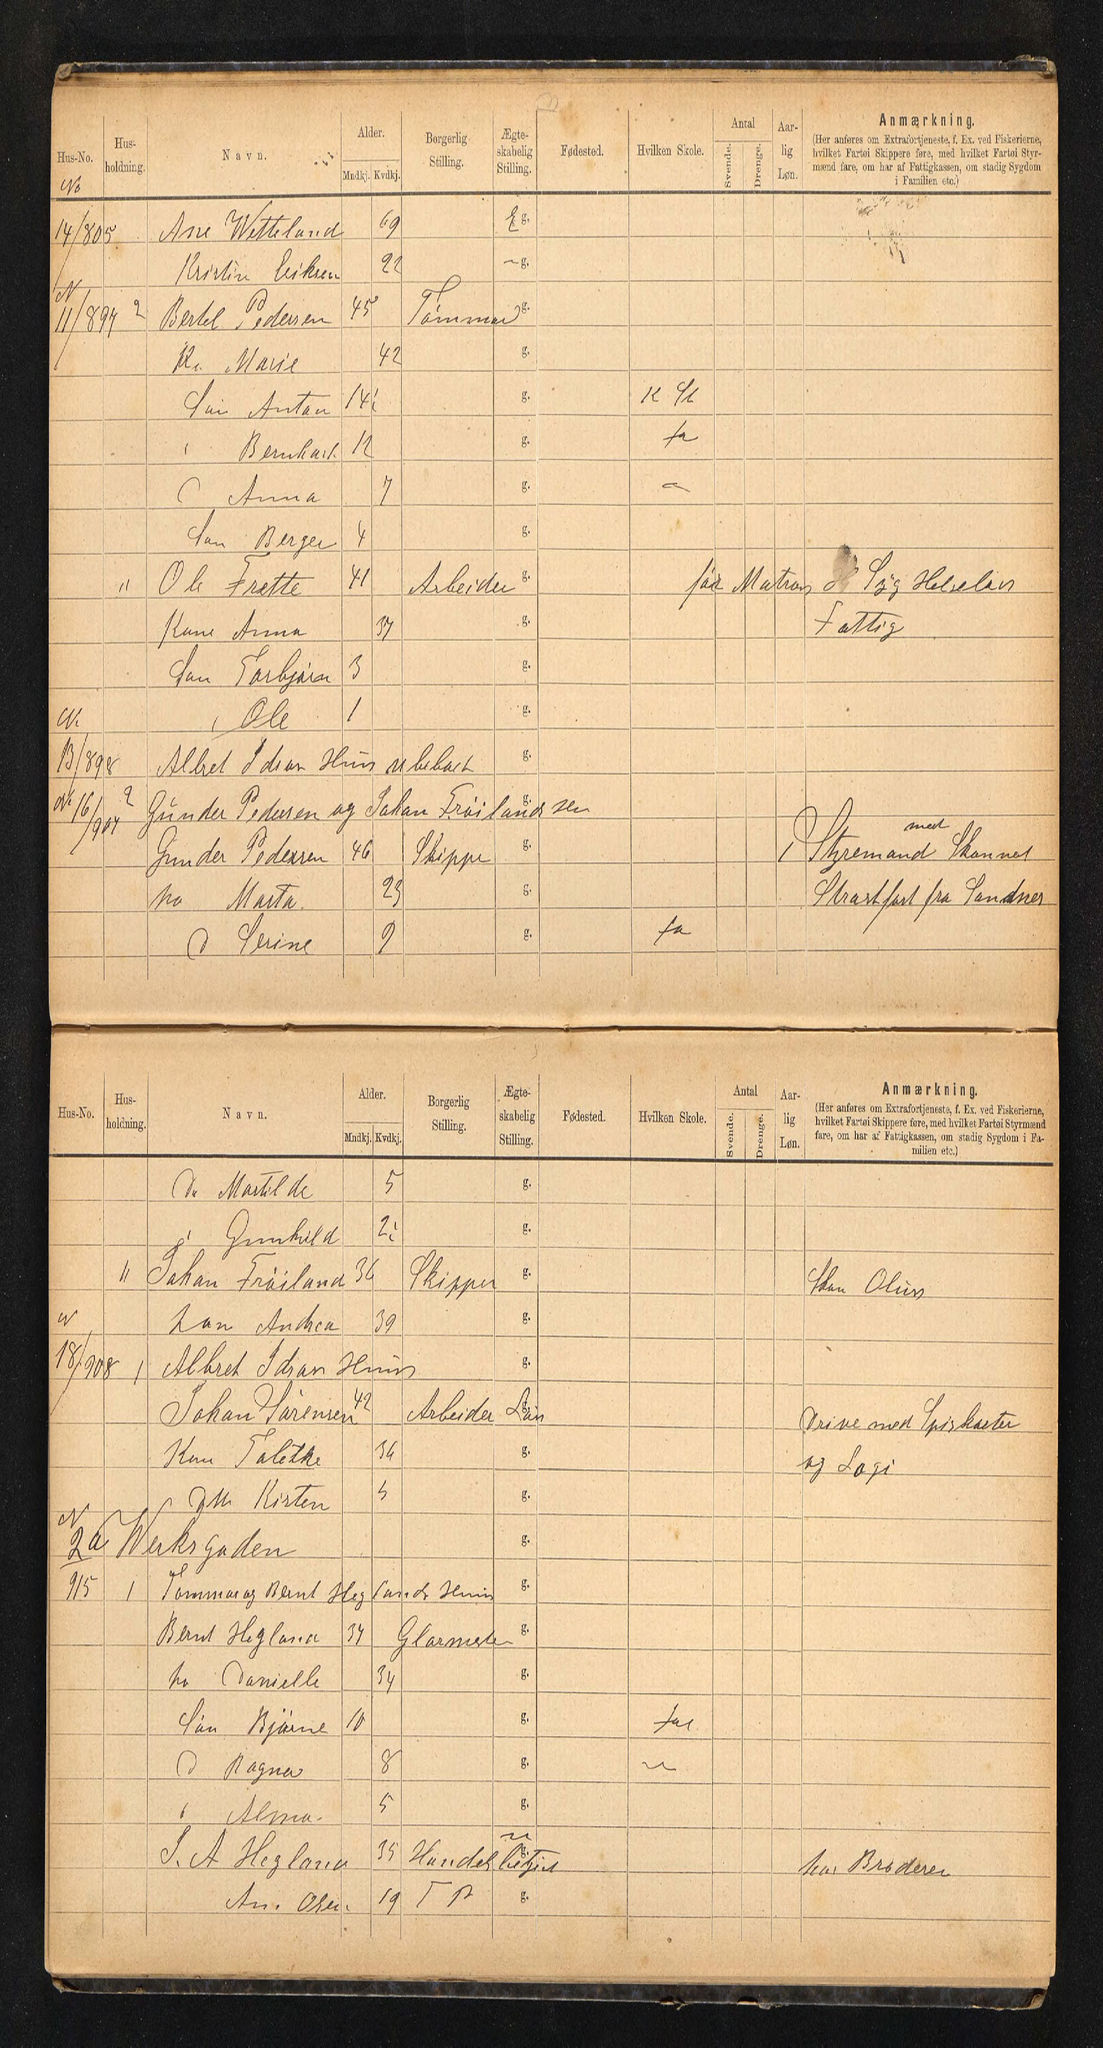 Hus-No. Hus-holdning. Navn. Alder. Mndkj. Kvdkj. Borgerlig Stilling. Ægte-skabelig Stilling. Fødested. Hvilken Skole. Antal Svende. Drenge. Aar-lig Løn. Anmærkning.
(Her anføres om Extrafortjeneste, f. Ex. ved Fiskerierne, hvilket Fartøi Skippere føre, med hvilket Fartøi Styr-mænd fare, om har af Fattigkassen, om stadig Sygdom i Familien etc.)
No
14/805 Ane Wetteland 69 g.
Kristin Eiksen 22 g.
N
11/897 2 Bertel Pedersen 45 Tømmer g.
Marie 42 g.
Søn Anton 14 g. K Sk
" Bernhart 12 g. fa
D Anna 7 g. "
Søn Berger 4 g.
" Ole Frette 41 Arbeider g. før Matros Syg Helseløs
Kone Anna 37 g. Fattig
Søn Torbjørn 3 g.
" Ole 1 g.
N
13/898 Albret Idsøs Huus ubeboet g.
N 16/907 2 Gunder Pedersen og Johan Frøilandsen g.
Gunder Pedersen 46 Skipper g. Styremand med Skonnet
ko Marta 23 g. fra Sandnes
D Serine 9 g. fa
Hus-No. Hus-holdning. Navn. Alder. Mndkj. Kvdkj. Borgerlig Stilling. Ægte-skabelig Stilling. Fødested. Hvilken Skole. Antal Svende. Drenge. Aar-lig Løn. Anmærkning.
(Her anføres om Extrafortjeneste, f. Ex. ved Fiskerierne, hvilket Fartøi Skippere føre, med hvilket Fartøi Styrmænd fare, om har af Fattigkassen, om stadig Sygdom i Fa-milien etc.)
Da Martilde 5 g.
" Gunhild 2 g.
" Johan Frøiland 36 Skipper g. Skon Olius
Andrea 39 g.
N
18/908 1 Albret Idsøs Huus g.
Johan Sørensen 42 Arbeider g. Drive med Spiskarter
Kone Taletke 36 g. og Logi
Dtt Kirsten 5 g.
N
2a Werksgaden g.
915 1 Tommas og Bernt Heglands Huus g.
Bernt Hegland 37 Glarmester g.
ko Danielle 34 g.
Søn Bjørne 10 g. fa
D Ragna 8 g. "
" Alma 5 g.
J. A Hegland 35 Handelsbetjent g. hos Broderen
An. Olsen 19 T P g.